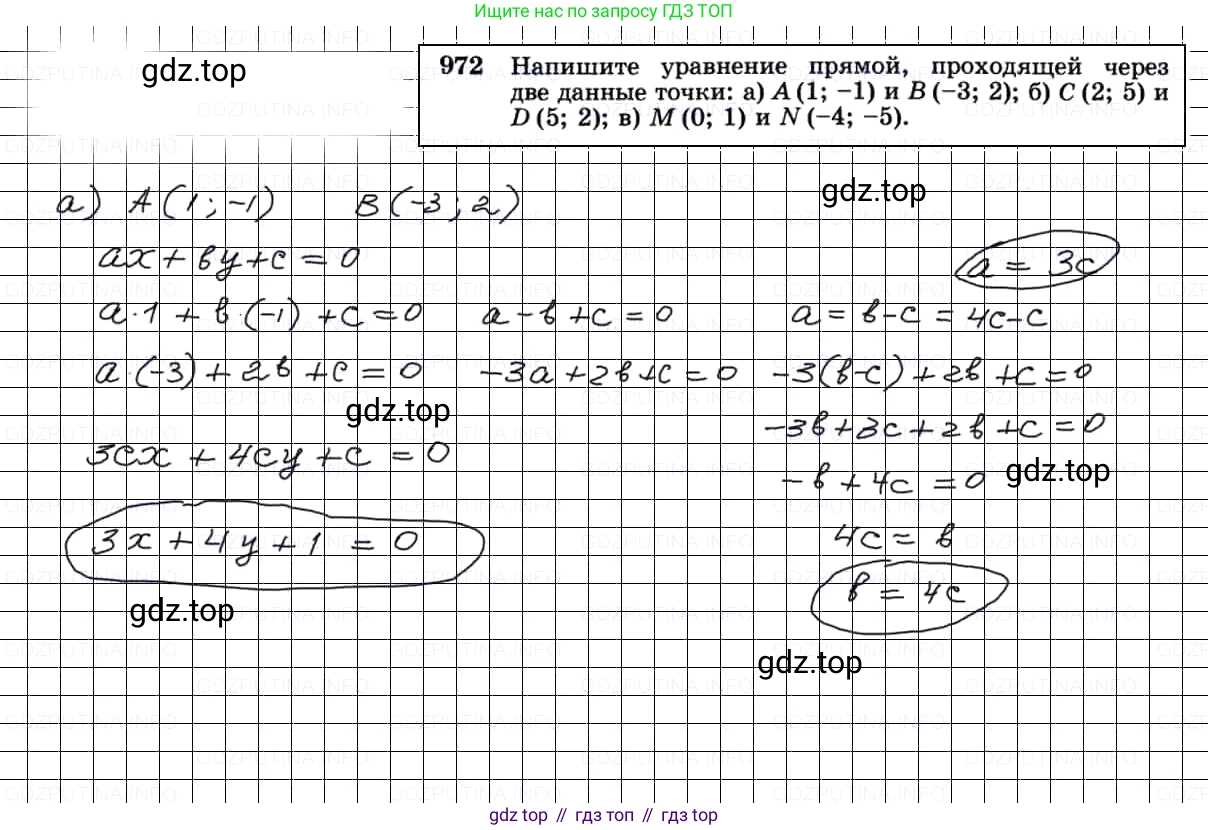 Ищите нас по запросу ГДЗ ТОП
972 Напишите уравнение прямой, проходящей через
две данные точки: а) A (1; −1) и B (−3; 2); б) C (2; 5) и
D (5; 2); в) M (0; 1) и N (−4; −5).
gdz.top
а) A (1 ; -1) B (-3 ; 2)
gdz.top
ax + by + c = 0
a = 3c
a·1 + b·(-1) + c = 0 a - b + c = 0 a = b-c = 4c-c
a·(-3) + 2b + c = 0 -3a + 2b + c = 0 -3(b-c) + 2b + c = 0
gdz.top
-3b + 3c + 2b + c = 0
3cx + 4cy + c = 0
gdz.top
-b + 4c = 0
3x + 4y + 1 = 0
4c = b
b = 4c
gdz.top
gdz.top
GDZPUTINA.INFO
gdz top // гдз топ // гдз top